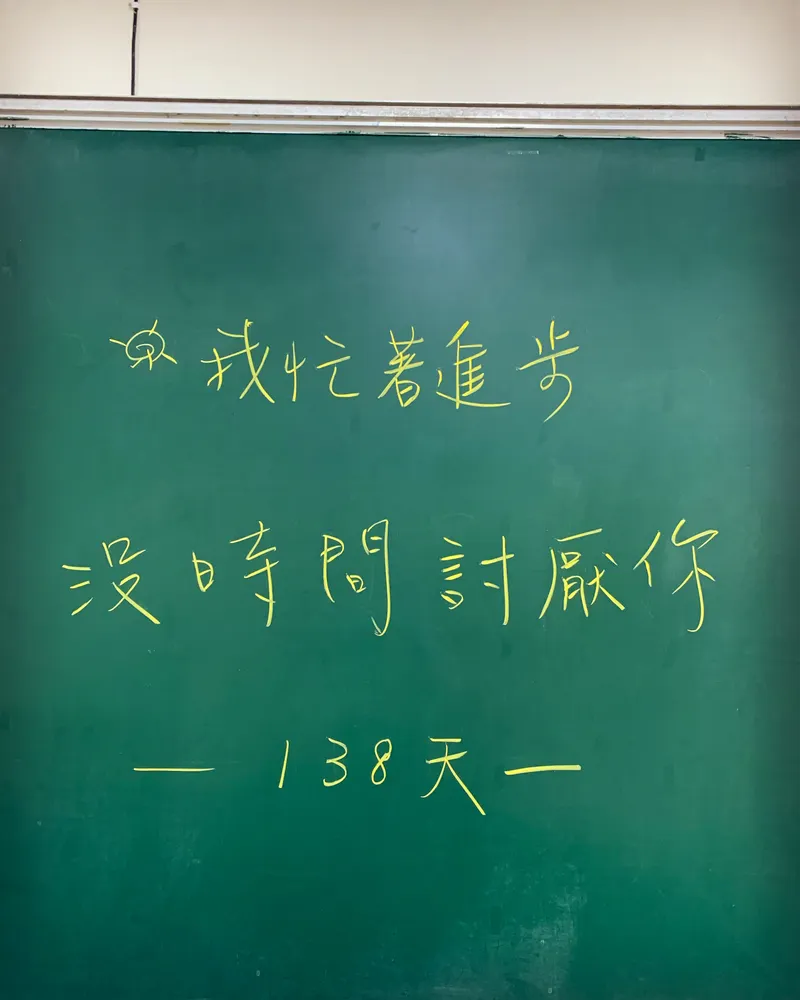 我忙著進步
沒時間討厭你
— 138天 —